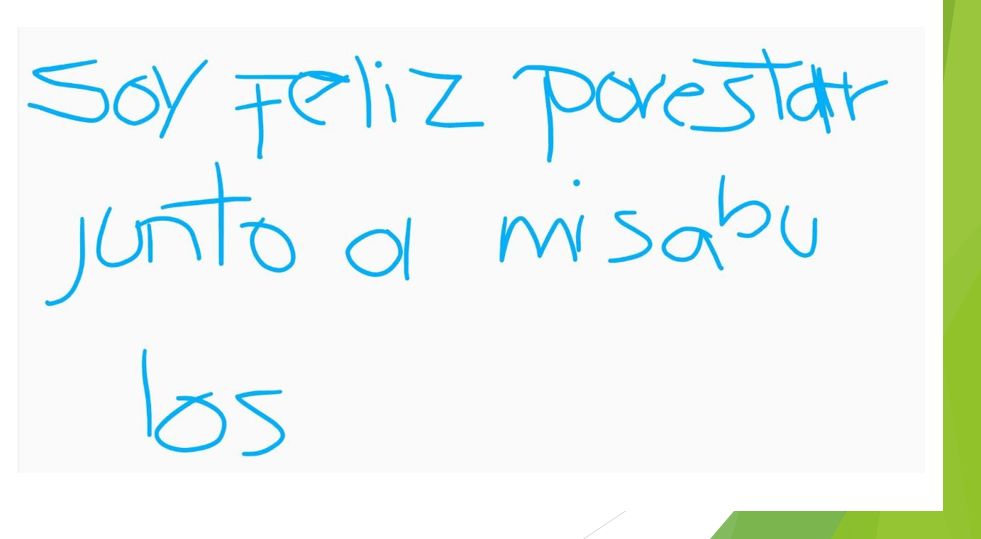 Soy Feliz porestar
junto a misabu
los